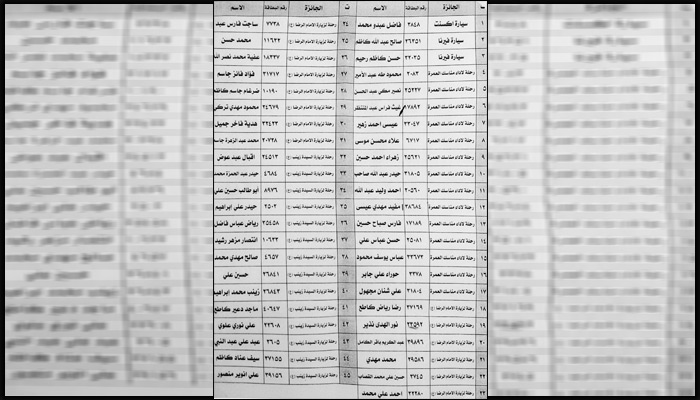 ت الجائزة رقم البطاقة الاسم ت الجائزة رقم البطاقة الاسم
١ سيارة اكسنت ٣٨٤٨ فاضل عبدو محمد ٢٤ رحلة لزيارة الامام الرضا (ع) ٧٧٣٨ ساجت فارس عبد
٢ سيارة فيرنا ٣٦٣٥١ صالح عبد الله كاظم ٢٥ رحلة لزيارة الامام الرضا (ع) ١١٦٣٣ محمد حسن
٣ سيارة فيرنا ٣٢٠٣٥ حسن كاظم رحيم ٢٦ رحلة لزيارة الامام الرضا (ع) ١٨٣٣٧ محمد نصر الله
٤ رحلة لاداء مناسك العمرة ٣٠٨٣ محمود طه عبد الامير ٢٧ رحلة لزيارة الامام الرضا (ع) ٣١٧١٧ فؤاد فائز جاسم
٥ رحلة لاداء مناسك العمرة ٢٥٢٣٧ نصير مكي عبد الحسن ٢٨ رحلة لزيارة الامام الرضا (ع) ١٠١٩٠ ضرغام جاسم كاظم
٦ رحلة لاداء مناسك العمرة ٧٨٩٣ غيث فراس عبد المنتظر ٢٩ رحلة لزيارة الامام الرضا (ع) ٢٤٦٧٩ محمود مهدي تركي
٧ رحلة لاداء مناسك العمرة ٣٣٠٤٧ عيسى احمد زهير ٣٠ رحلة لزيارة الامام الرضا (ع) ٣٣٤٢٣ هدية فاخر جميل
٨ رحلة لاداء مناسك العمرة ٦٧١٧ علاء محسن موسى ٣١ رحلة لزيارة الامام الرضا (ع) ٢٠٧٢٨ محمد عبد الزهرة
٩ رحلة لاداء مناسك العمرة ٢٥٦٢١ زهراء احمد حسين ٣٢ رحلة لزيارة السيدة زينب (ع) ٢٤٥١٣ اقبال عبد عوض
١٠ رحلة لاداء مناسك العمرة ٣١٨٠٥ حيدر عبد الله صاحب ٣٣ رحلة لزيارة السيدة زينب (ع) ٤٦٨٤ حيدر عبد الحمزة محمد
١١ رحلة لاداء مناسك العمرة ٢٠٥٦٠ احمد وليد عبد الله ٣٤ رحلة لزيارة السيدة زينب (ع) ٨٩٧٦ ابو طالب حسين علي
١٢ رحلة لاداء مناسك العمرة ٣٨٦٨٤ مفيد مهدي عيسى ٣٥ رحلة لزيارة السيدة زينب (ع) ٣٥٠٢ حيدر علي ابراهيم
١٣ رحلة لاداء مناسك العمرة ١٧١٨٩ فارس صباح حسين ٣٦ رحلة لزيارة السيدة زينب (ع) ٣٥٤٥٨ رياض عباس فاضل
١٤ رحلة لاداء مناسك العمرة ٢٥٠٨١ حسن عباس علي ٣٧ رحلة لزيارة السيدة زينب (ع) ١٠٦٣٣ انتصار مزهر رشيد
١٥ رحلة لاداء مناسك العمرة ٣٣٦٧٣ عباس يوسف محمود ٣٨ رحلة لزيارة السيدة زينب (ع) ٤٦٥٧ صالح مهدي محمد
١٦ رحلة لاداء مناسك العمرة ٣٣٧٨ حوراء علي جابر ٣٩ رحلة لزيارة السيدة زينب (ع) ٣٦٨٤١ حسين علي
١٧ رحلة لاداء مناسك العمرة ٣١٨٠٤ علي شنان مجهول ٤٠ رحلة لزيارة السيدة زينب (ع) ٣٦٨٤٣ زينب محمد ابراهيم
١٨ رحلة لزيارة الامام الرضا (ع) ٣٧١٦٩ رضا رياض كاطع ٤١ رحلة لزيارة السيدة زينب (ع) ٤٠٦٤٧ ماجد دعير كاطع
١٩ رحلة لزيارة الامام الرضا (ع) ٣٣٥٩٢ نور الهدى نذير ٤٢ رحلة لزيارة السيدة زينب (ع) ٣٣٦٠٨ علي نوري علوي
٢٠ رحلة لزيارة الامام الرضا (ع) ٢٩٨٩٦ عبد الكريم باقر الكامل ٤٣ رحلة لزيارة السيدة زينب (ع) ٣٦٠٥ عبد علي عبد النبي
٢١ رحلة لزيارة الامام الرضا (ع) ٢٩٥٨٦ محمد مهدي ٤٤ رحلة لزيارة السيدة زينب (ع) ٣٧١٥٥ سيف عناد كاظم
٢٢ رحلة لزيارة الامام الرضا (ع) ٣٧٤٥ حسين علي محمد القصاب ٤٥ رحلة لزيارة السيدة زينب (ع) ٣٩١٥٦ علي انوير منصور
٢٣ رحلة لزيارة الامام الرضا (ع) ٢٢٢٨٠ احمد علي محمد